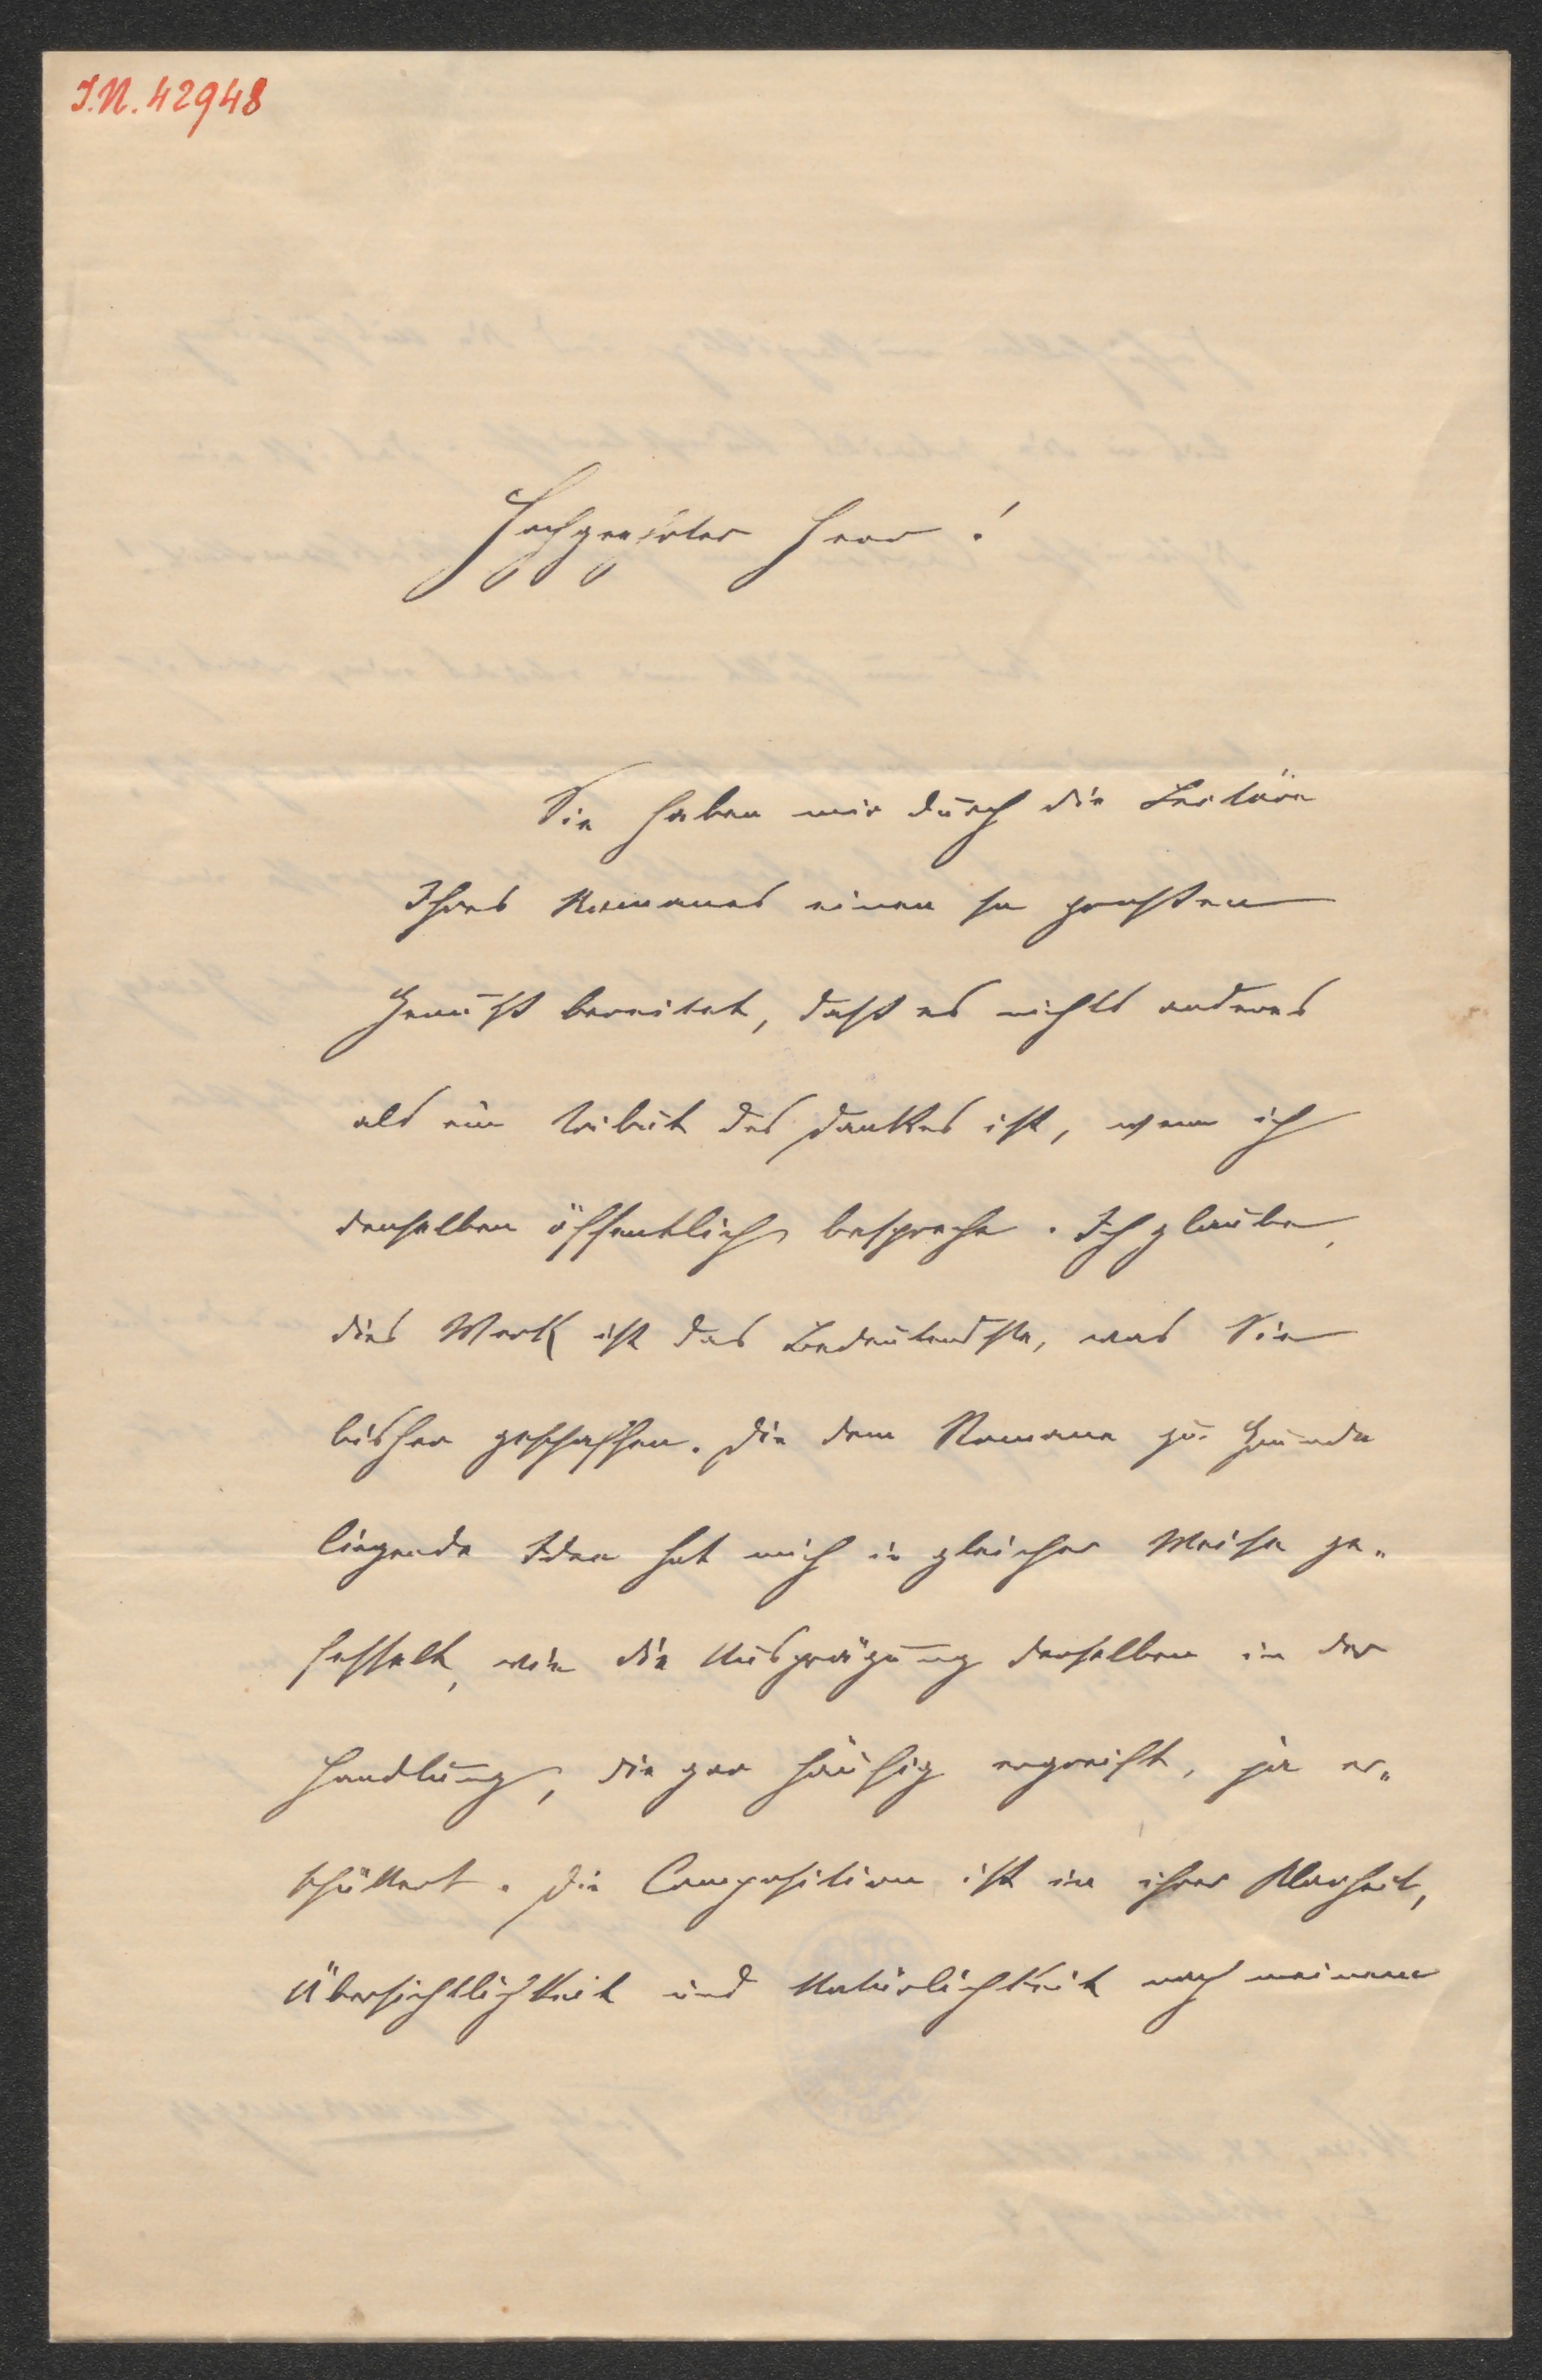 I.N. 42948
Hochgeehrter Herr!
Sie haben mir durch die Lectüre
Ihres Romanes einen so großen
Genuß bereitet, daß es nichts anderes
als ein Tribut des Dankes ist, wenn ich
denselben öffentlich bespreche. Ich glaube,
dies Werk ist das Bedeutendste, was Sie
bisher geschaffen. Die dem Romane zu Grunde
liegende Idee hat mich in gleicher Weise ge-
fesselt, wie die Ausprägung derselben in der
Handlung, die gar häufig ergreift, ja er-
schüttert. Die Composition ist in ihrer Klarheit,
Übersichtlichkeit und Natürlichkeit nach meinem